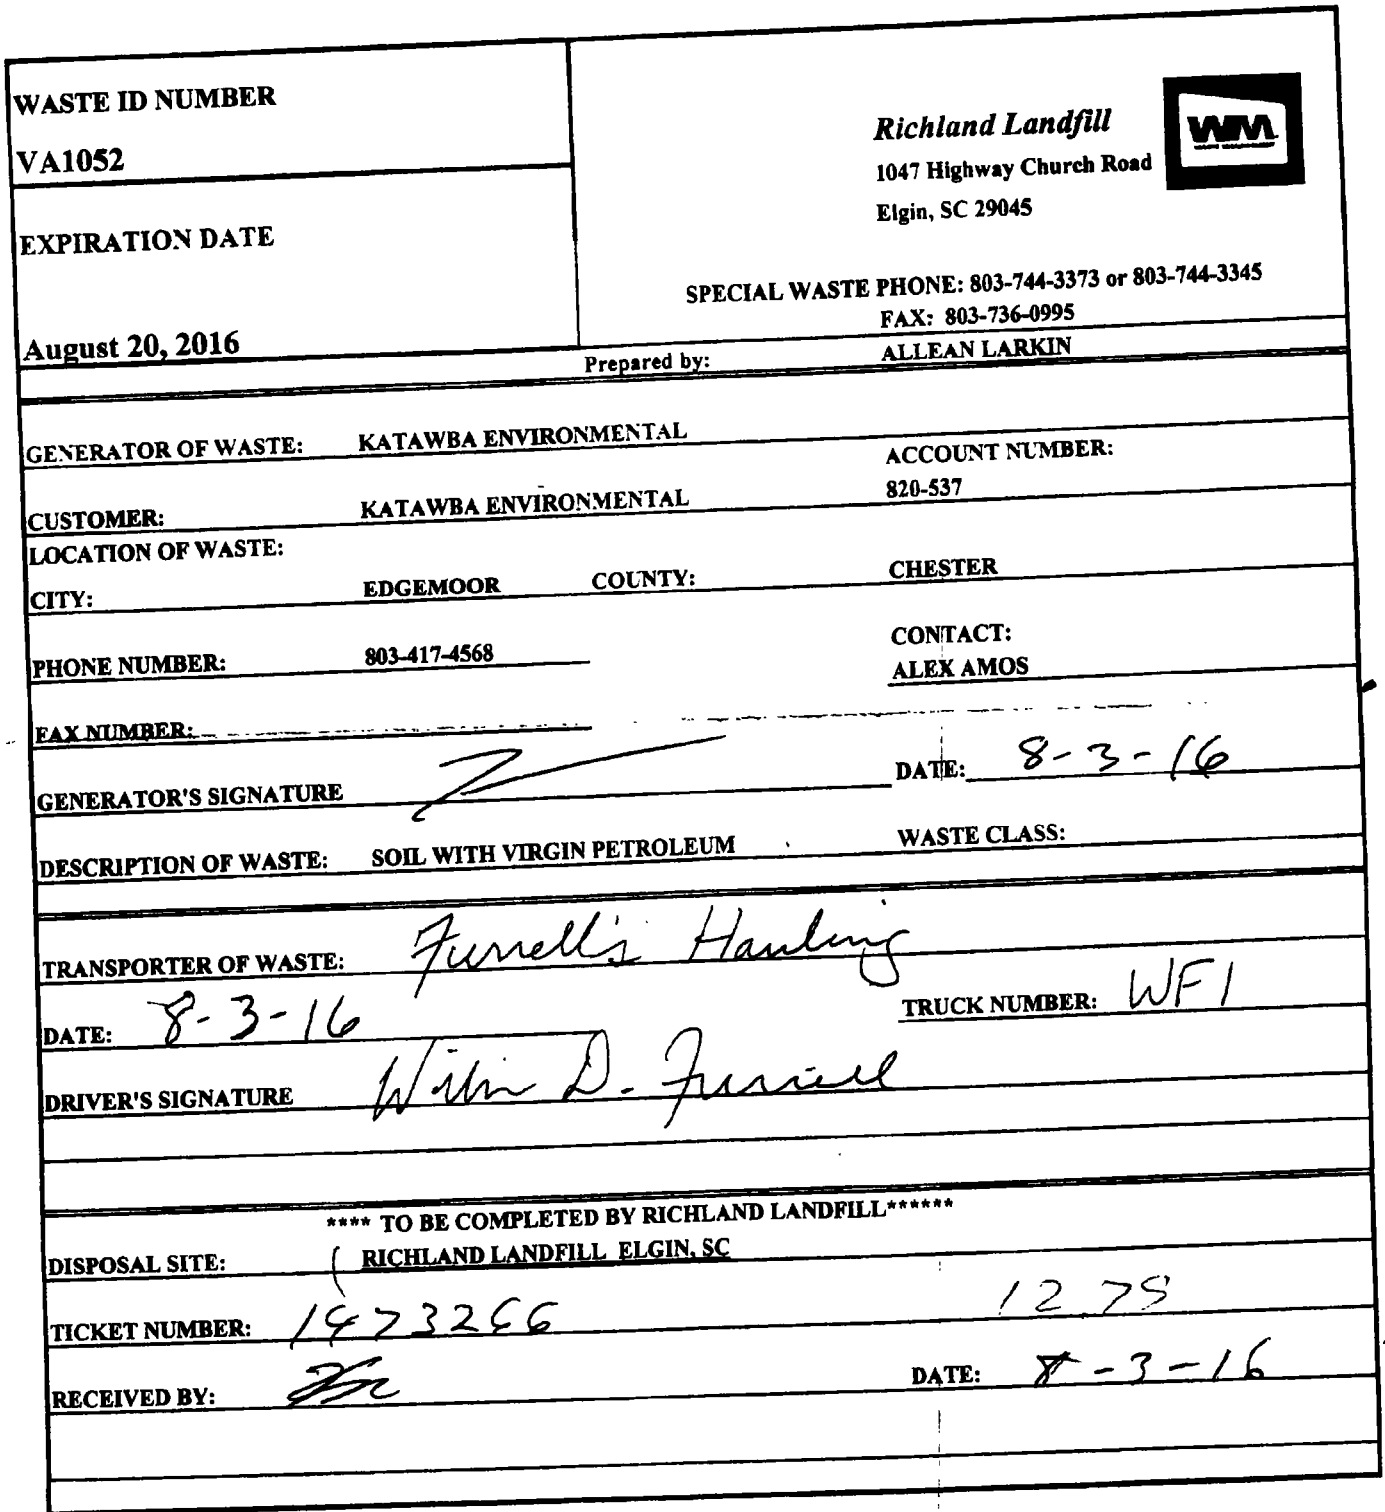 WASTE ID NUMBER
VA1052
EXPIRATION DATE
August 20, 2016
Richland Landfill
WM
WASTE MANAGEMENT
1047 Highway Church Road
Elgin, SC 29045
SPECIAL WASTE PHONE: 803-744-3373 or 803-744-3345
FAX: 803-736-0995
Prepared by: ALLEAN LARKIN
GENERATOR OF WASTE: KATAWBA ENVIRONMENTAL
ACCOUNT NUMBER:
CUSTOMER: KATAWBA ENVIRONMENTAL 820-537
LOCATION OF WASTE:
CITY: EDGEMOOR COUNTY: CHESTER
CONTACT:
PHONE NUMBER: 803-417-4568 ALEX AMOS
FAX NUMBER:
GENERATOR'S SIGNATURE DATE: 8-3-16
DESCRIPTION OF WASTE: SOIL WITH VIRGIN PETROLEUM WASTE CLASS:
TRANSPORTER OF WASTE: Furrell's Hauling
DATE: 8-3-16 TRUCK NUMBER: WF1
DRIVER'S SIGNATURE D. Furrell
**** TO BE COMPLETED BY RICHLAND LANDFILL******
DISPOSAL SITE: RICHLAND LANDFILL ELGIN, SC
TICKET NUMBER:
RECEIVED BY: DATE: 8-3-16